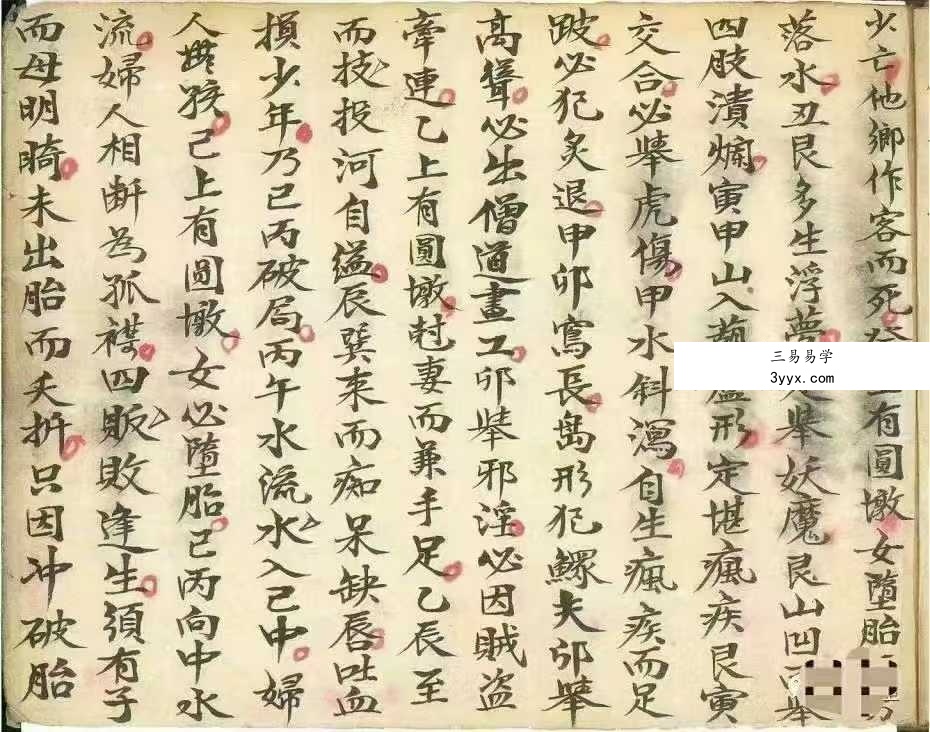 少亡他鄉作客而死 有圓墩女墮胎
落水丑艮多生浮夢 舉妖魔艮山凹 舉
四肢潰爛寅甲山入葫蘆形定堪瘋疾艮寅
交合必舉虎傷甲水斜瀉自生瘋疾而足
跛必犯炙退申卯寫長島形犯鰥夫卯舉
高聳必出僧道畫工卯舉邪淫必因賊盗
牽連乙上有圓墩尅妻而兼手足乙辰至
而技投河自縊辰巽来而痴呆缺唇吐血
損少年乃巳丙破局丙午水流水入巳中婦
人無孩巳上有圓墩女必墮胎巳丙向中水
流婦人相断為孤襟四販敗逢生須有子
而母明睛未出胎而夭折只因冲破胎
三易易学
3yyx.com